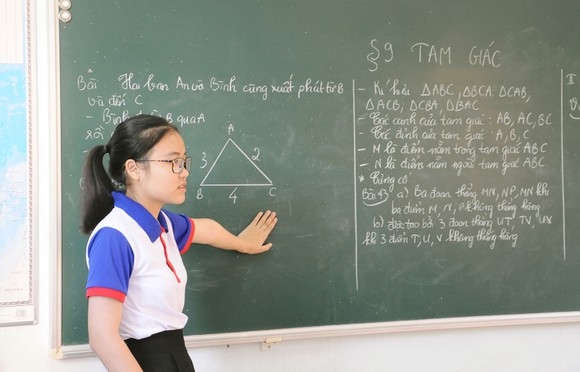 §9 TAM GIÁC
Bài Hai bạn An và Bình cùng xuất phát từ B
và đến C
- Bình B qua A
rồi
A
3
2
B
4
C
- Kí hiệu ΔABC, ΔBCA ΔCAB,
ΔACB, ΔCBA, ΔBAC
- Các cạnh của tam giác : AB, AC, BC
- Các đỉnh của tam giác : A, B, C
- M là điểm nằm trong tam giác ABC
- N là điểm nằm ngoài tam giác ABC
* Củng cố
Bài 43 a) Ba đoạn thẳng MN, NP, MN khi
ba điểm M, N, P không thẳng hàng
b) được tạo bởi 3 đoạn thẳng UT, TV, UV
khi 3 điểm T, U, V không thẳng hàng